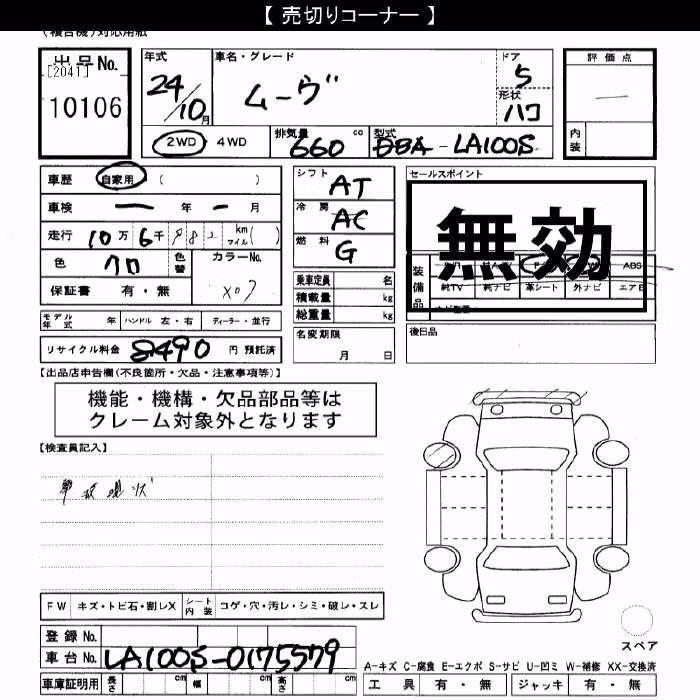 【 売切りコーナー 】
(複合機)対応用紙
出品No.
[2041]
10106
年式
24/10月
車名・グレード
ムーヴ
ドア
5
形状
ハコ
評価点
—
内装
2WD ・ 4WD
排気量 660 cc
型式 DBA - LA100S
車歴 自家用 ( )
車検 — 年 — 月
走行 10万 6千 982 km マイル ( )
色 クロ
色替
カラーNo.
X07
保証書 有・無
シフト AT
冷房 AC
燃料 G
乗車定員 名
積載量 kg
総重量 kg
セールスポイント
無効
装備品
ABS
純TV 純ナビ 革シート 外ナビ エアB
モデル年式 年 ハンドル 左・右 ディーラー・並行
リサイクル料金 8490 円 預託済
名変期限
月 日
後日品
【出品店申告欄(不良箇所・欠品・注意事項等)】
機能・機構・欠品部品等は
クレーム対象外となります
【検査員記入】
事故現状
FW キズ・トビ石・割レX シート内装 コゲ・穴・汚レ・シミ・破レ・スレ
スペア
登録 No.
車台 No. LA100S-0175579
車庫証明用 長さ cm 幅 cm 高さ cm
A-キズ C-腐食 E-エクボ S-サビ U-凹ミ W-補修 XX-交換済
工具 有・無 ジャッキ 有・無